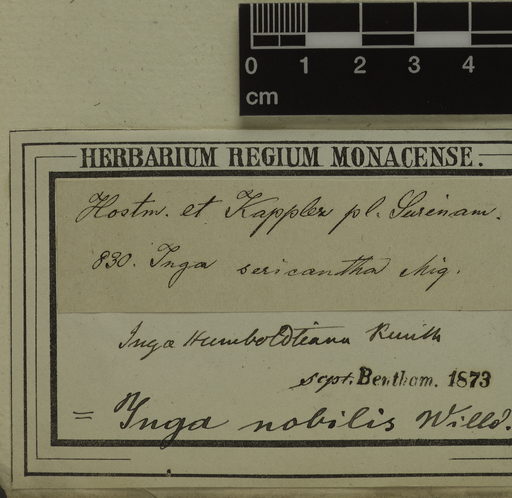 0 1 2 3 4
cm
HERBARIUM REGIUM MONACENSE.
Hostm. et Kappler pl. Surinam.
830. Inga sericantha Miq.
Inga Humboldtiana Kunth
sept. Bentham. 1873
= Inga nobilis Willd.